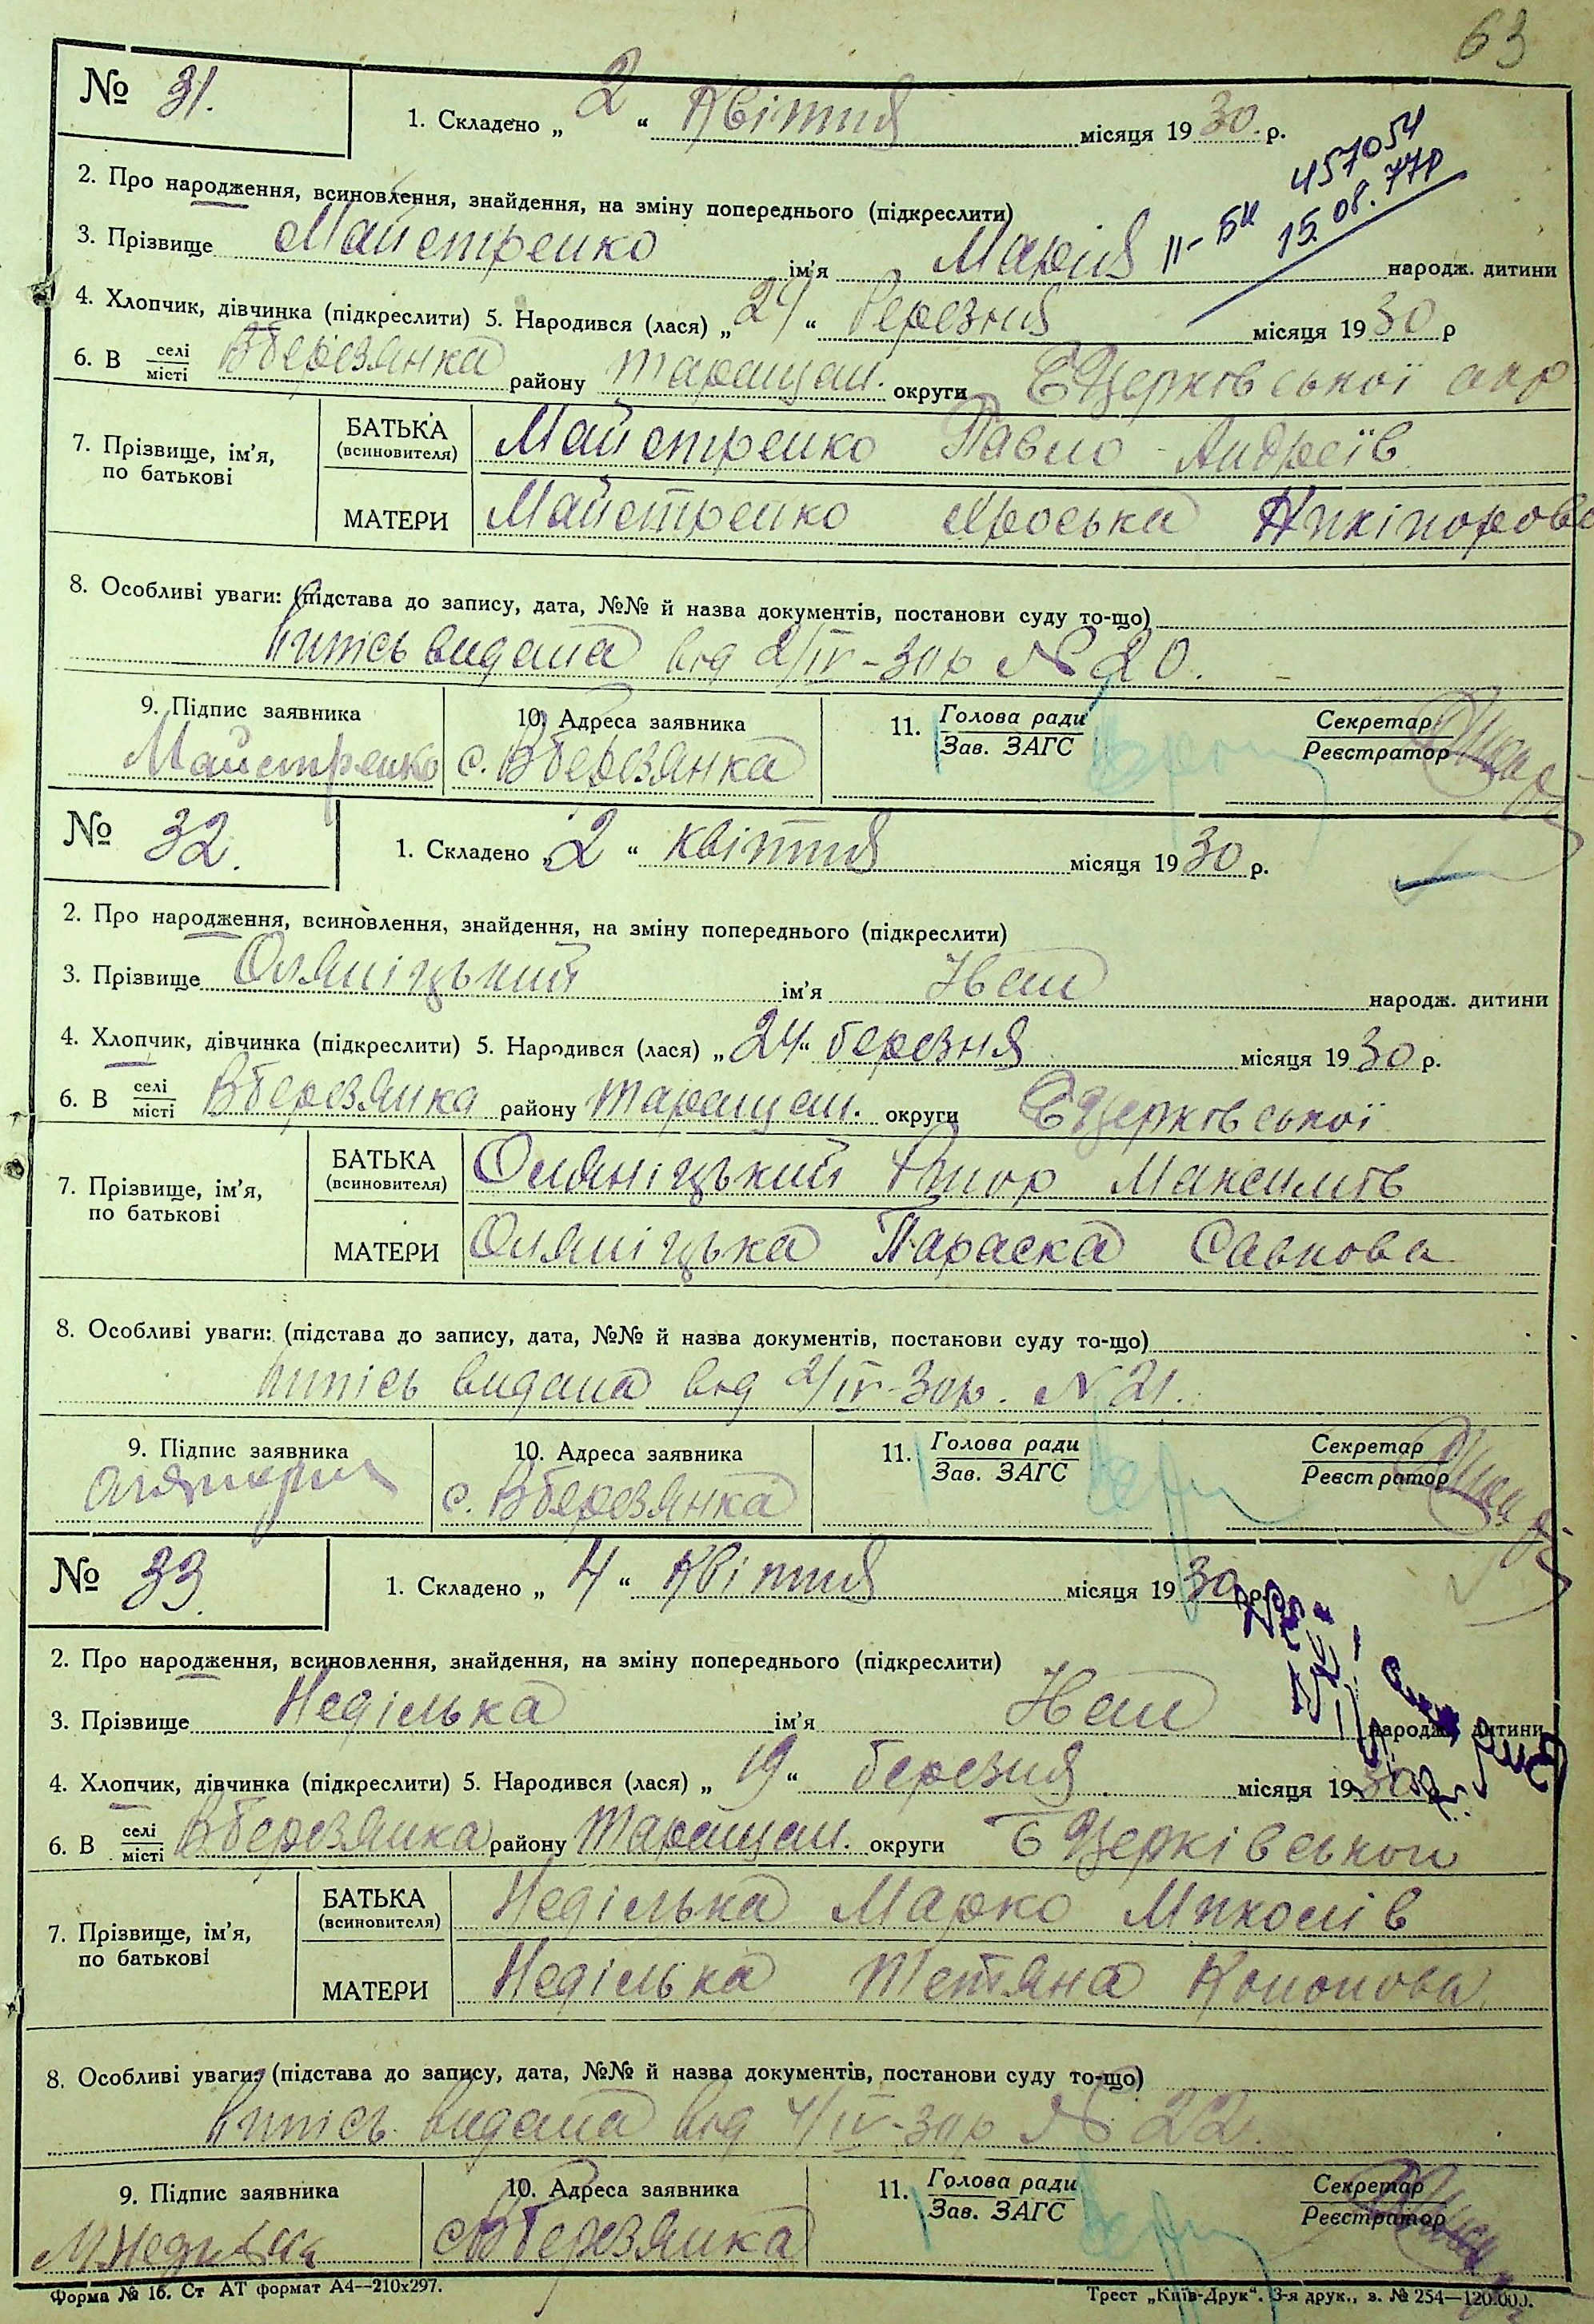 63
№ 31.
1. Складено „ 2 “ Квітня місяця 1930 р.
457054
15.08.77р
II-БК
2. Про народження, всиновлення, знайдення, на зміну попереднього (підкреслити)
3. Прізвище Майстренко ім’я Марія народж. дитини
4. Хлопчик, дівчинка (підкреслити) 5. Народився (лася) „ 24 “ березня місяця 1930 р
6. В селі/місті Вберезянка району Таращан. округи БЦерківської окр
7. Прізвище, ім’я, по батькові
БАТЬКА (всиновителя) Майстренко Павло Андреїв
МАТЕРИ Майстренко Хроська
8. Особливі уваги: (підстава до запису, дата, №№ й назва документів, постанови суду то-що)
Випісь видана від 2/IV-30р № 20.
9. Підпис заявника 10. Адреса заявника 11. Голова ради/Зав. ЗАГС Секретар/Реєстратор
Майстренко с. Вберезянка
№ 32.
1. Складено „ 2 “ квітня місяця 1930 р.
2. Про народження, всиновлення, знайдення, на зміну попереднього (підкреслити)
3. Прізвище Оляніцький ім’я Іван народж. дитини
4. Хлопчик, дівчинка (підкреслити) 5. Народився (лася) „ 24 “ березня місяця 1930 р.
6. В селі/місті Вберезянка району Таращан. округи БЦерківської
7. Прізвище, ім’я, по батькові
БАТЬКА (всиновителя) Оляніцький Максимів
МАТЕРИ Оляніцька Параска Савкова
8. Особливі уваги: (підстава до запису, дата, №№ й назва документів, постанови суду то-що)
Випісь видана від 2/IV-30р. № 21.
9. Підпис заявника 10. Адреса заявника 11. Голова ради/Зав. ЗАГС Секретар/Реєстратор
с. Вберезянка
№ 33.
1. Складено „ 4 “ Квітня місяця 1930 р.
2. Про народження, всиновлення, знайдення, на зміну попереднього (підкреслити)
3. Прізвище Неділька ім’я Іван народж. дитини
4. Хлопчик, дівчинка (підкреслити) 5. Народився (лася) „ 19 “ березня місяця 1930 р.
6. В селі/місті Вберезянка району Таращан. округи БЦерківської
7. Прізвище, ім’я, по батькові
БАТЬКА (всиновителя) Неділька Марко Миколів
МАТЕРИ Неділька Тетяна Кононова
8. Особливі уваги: (підстава до запису, дата, №№ й назва документів, постанови суду то-що)
Випісь видана від 4/IV-30р № 22.
9. Підпис заявника 10. Адреса заявника 11. Голова ради/Зав. ЗАГС Секретар/Реєстратор
сВберезянка
Форма № 16. Ст АТ формат А4—210x297.
Трест „Київ-Друк“. 3-я друк., з. № 254—120.000.